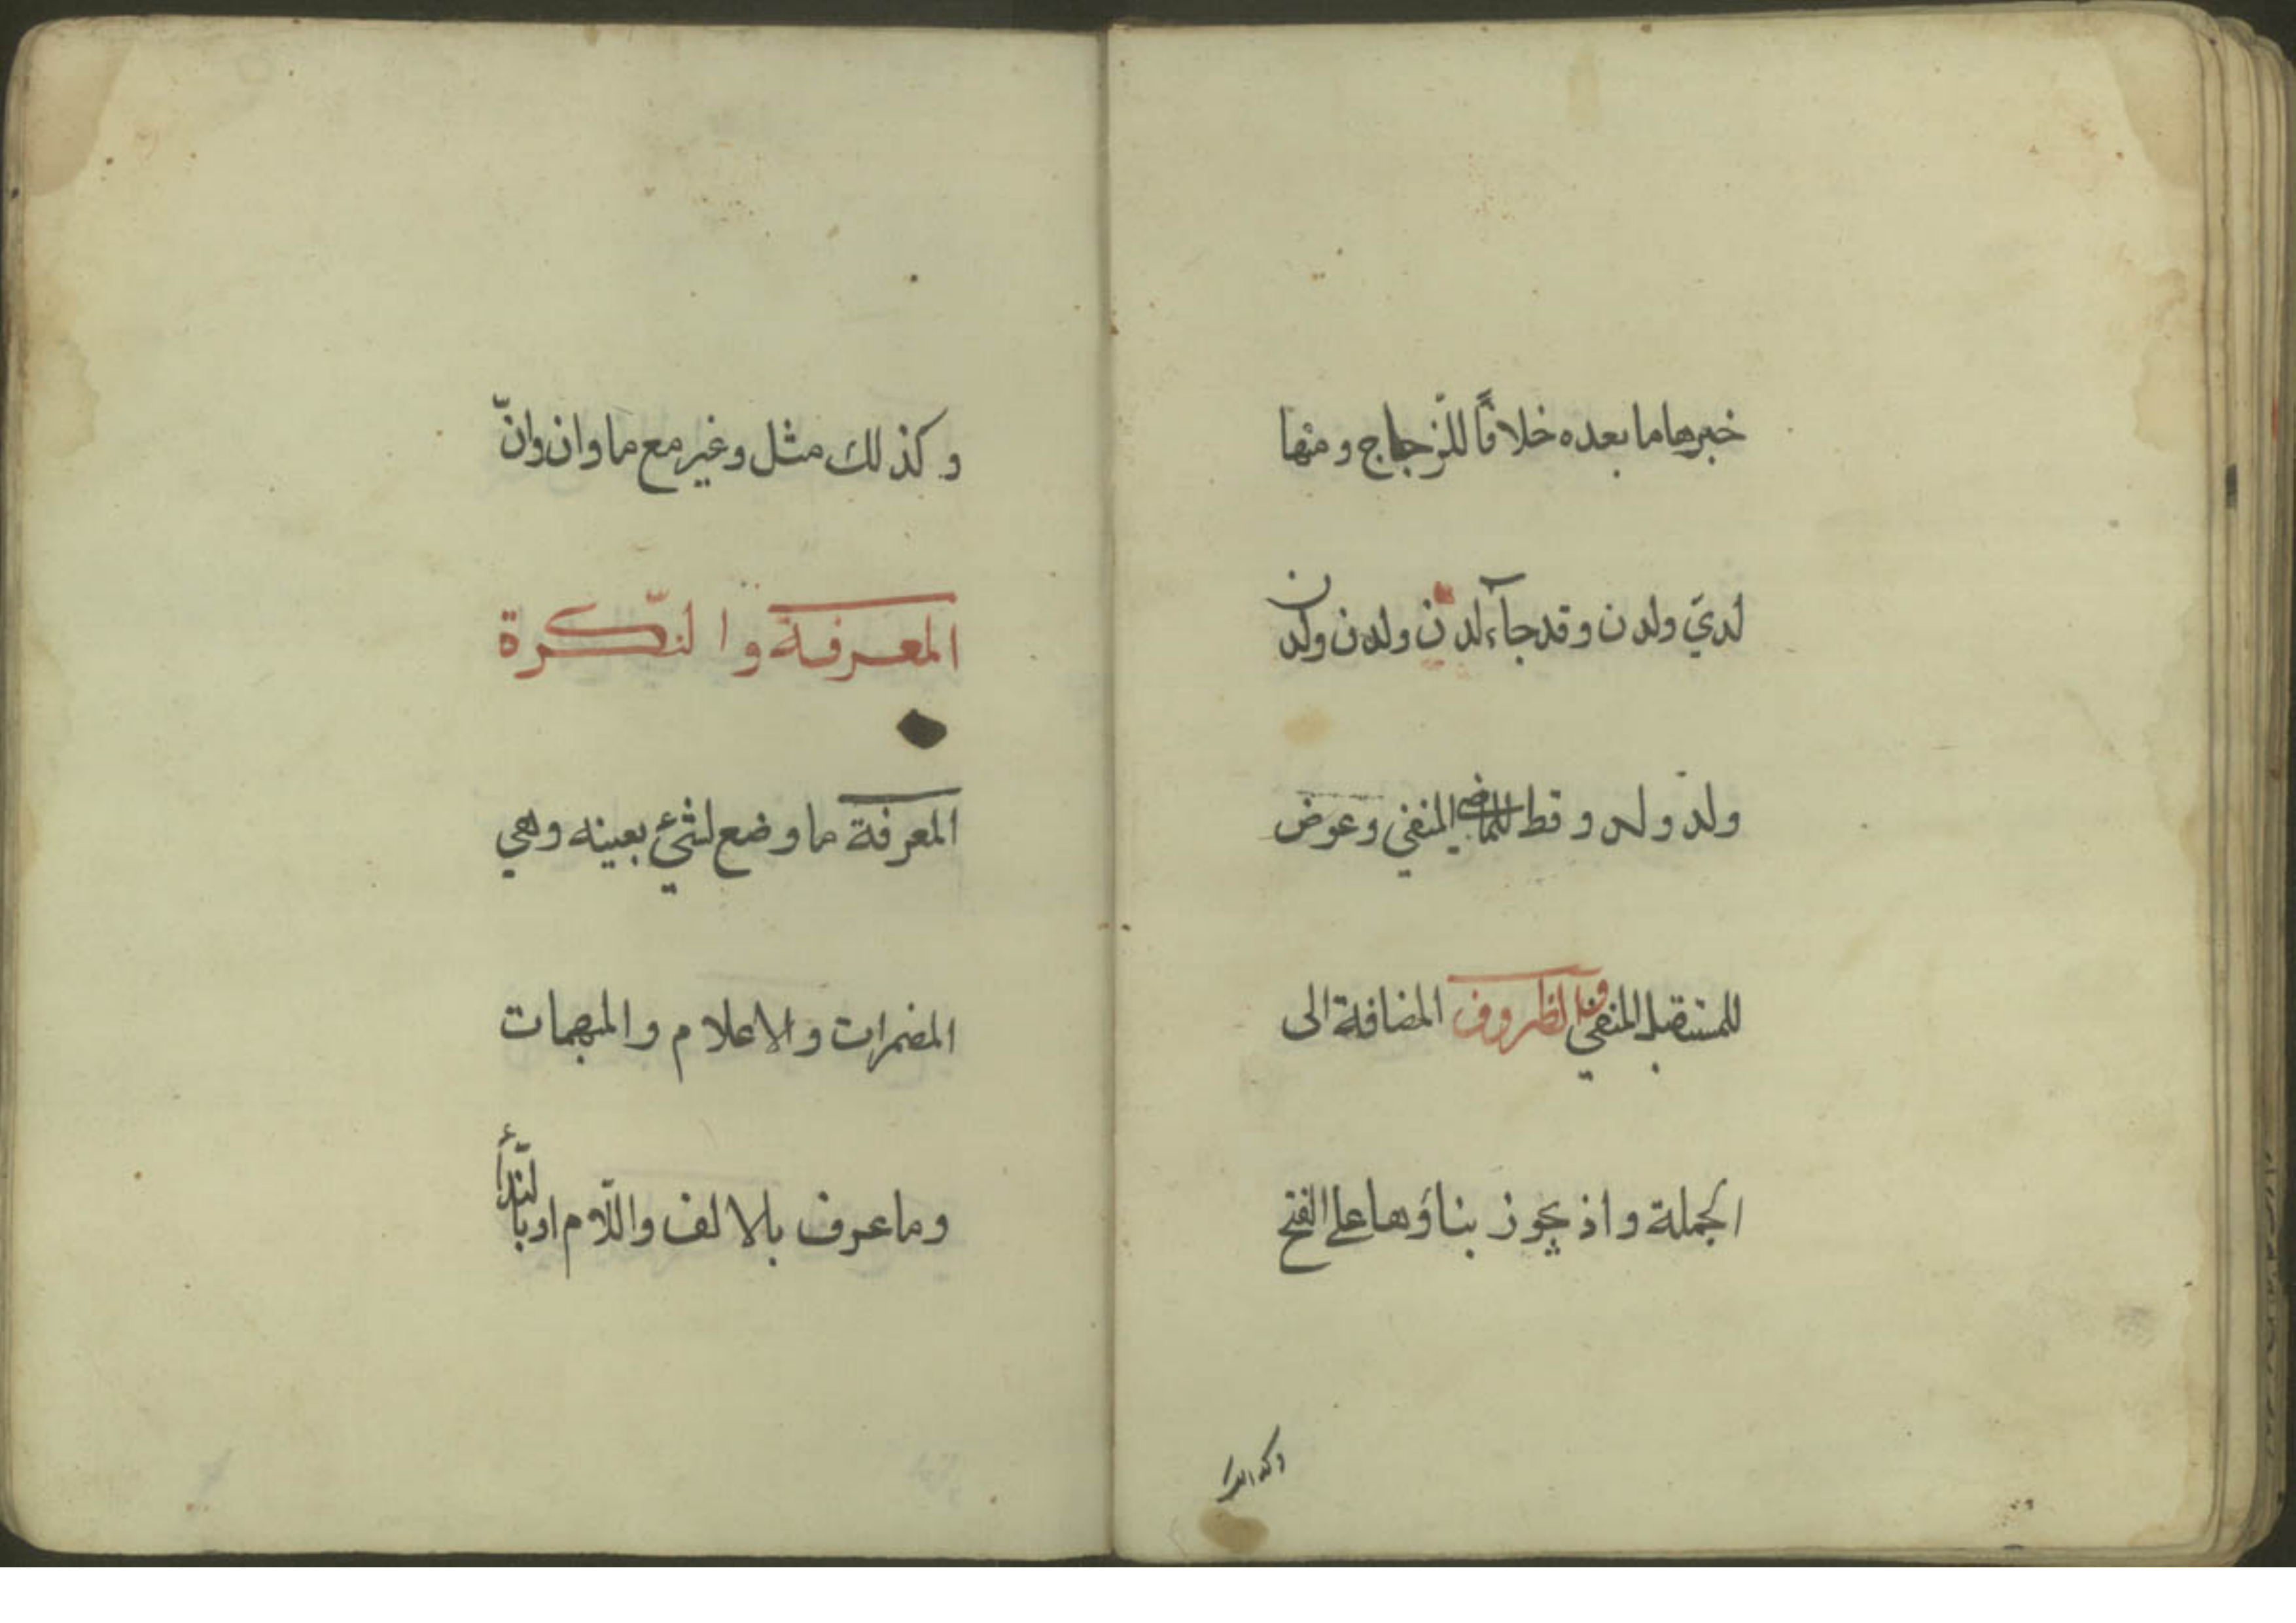 خبرها ما بعده خلافًا للزّجاج ومنها
لديَ ولدن وقد جآء لدن ولدن ولدن
ولد ولد وقط للماضي المنفي وعوض
للمستقبل المنفي والظروف المضافة الى
الجملة واذ يجوز بناؤها على الفتح
وكذلك مثل وغير مع ما وان وانّ
المعرفة والنّكرة
المعرفة ما وضع لشيء بعينه وهي
المضمرات والاعلام والمبهمات
وما عرف بالالف واللّام او بالنّدأ